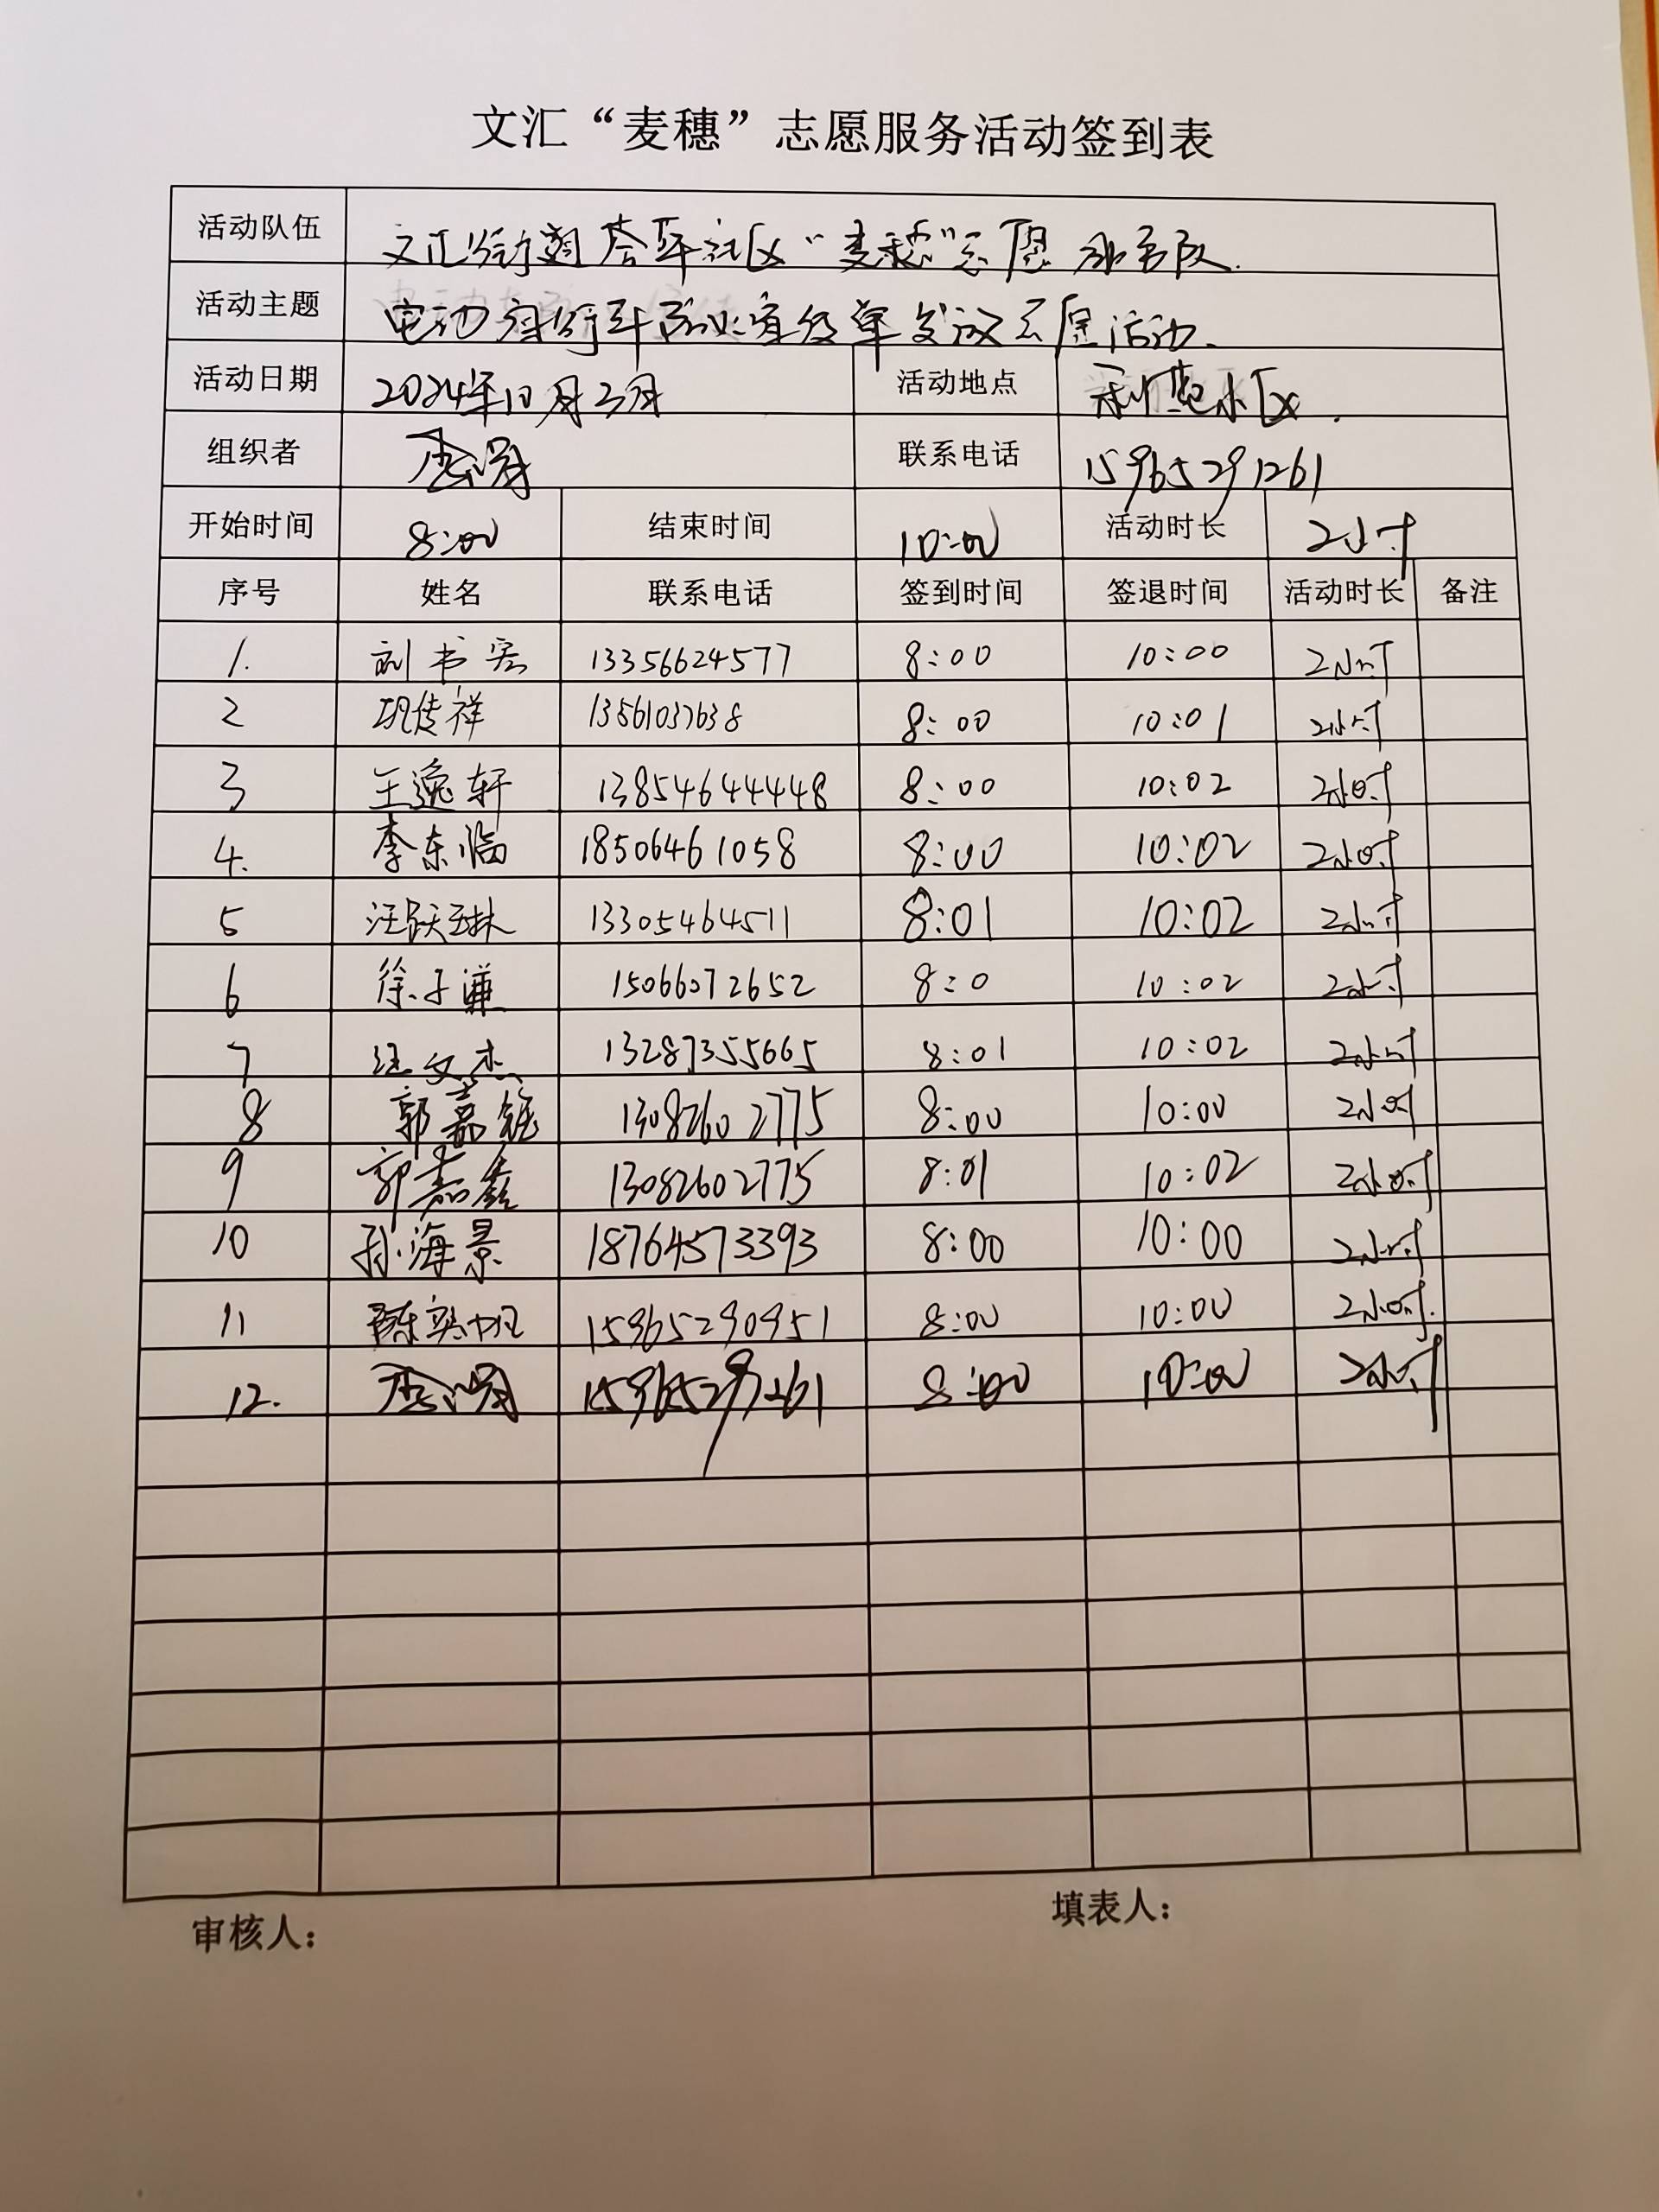 文汇“麦穗”志愿服务活动签到表
活动队伍 文汇街道 社区“麦穗”志愿服务队.
活动主题 电动自行车 宣传单发放志愿活动.
活动日期 2024年10月3日 活动地点 小区.
组织者 联系电话 15965291261
开始时间 8:00 结束时间 10:00 活动时长 2小时
序号 姓名 联系电话 签到时间 签退时间 活动时长 备注
1. 刘书宏 13356624577 8:00 10:00 2小时
2 巩传祥 13561037638 8:00 10:01 2小时
3 王逸轩 13854644448 8:00 10:02 2小时
4. 李东临 18506461058 8:00 10:02 2小时
5 汪跃琳 13305464511 8:01 10:02 2小时
6 徐子谦 15066072652 8:0 10:02 2小时
7 汪文杰 13287355665 8:01 10:02 2小时
8 郭嘉铭 13082602775 8:00 10:00 2小时
9 郭嘉鑫 13082602775 8:01 10:02 2小时
10 孙海景 18764573393 8:00 10:00 2小时
11 陈 15965290951 8:00 10:00 2小时.
12. 15965291261 8:00 10:00 2小时
审核人： 填表人：